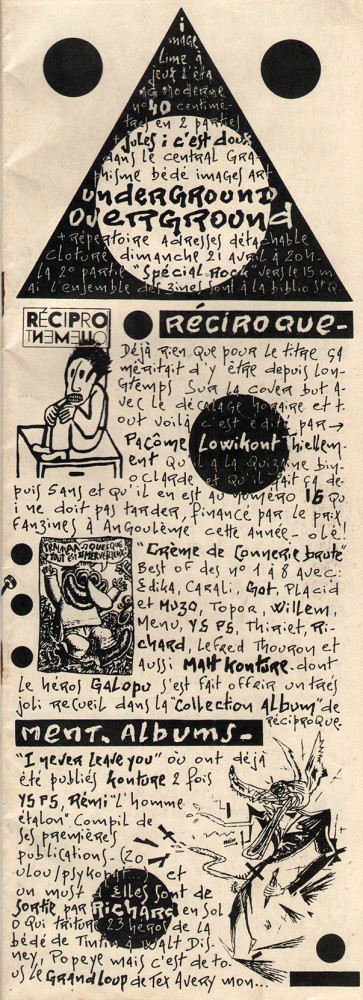 i
mage
lime à
jeux l'éta
ng moderne
no 40 centimè-
tres en 2 parties
+ Jules i c'est doux
dans le central Gra-
phisme bédé images ART
underGROUND
OVERGROUND
+ répertoire adresses détachable
cloture dimanche 21 avril à 20h.
La 2o partie "Spécial Rock" vers le 15 m
ai l'ensemble des zines sont à la biblio St Q.
RÉCIPRO
QUEMENT
RÉCIROQUE-
Déjà rien que pour le titre ça
méritait d'y être depuis lon-
gtemps sur la cover but a-
vec le décalage horaire et t.
out voilà c'est édité par →
Pacôme Lowikont Thiellem-
ent qu'il a la quizaine bin-
oclarde et qu'il fait ça de-
puis 5 ans et qu'il en est au numéro 16 qu
i ne doit pas tarder, financé par le prix
fanzines à Angoulème cette année - olé!
"Crème de Connerie brute"
Best of des no 1 à 8 avec:
Edika, Carali, Got, Placid
et Muzo, Topor, Willem,
Menu, Y5 P5, Thiriet, Ri-
chard, Lefred Thouron et
aussi Matt Konture - dont
le héros Galopu s'est fait offrir un très
joli recueil dans la "Collection Album" de
réciproque.
MENT. Albums-
"I never leave you" où ont déjà
été publiés Konture 2 fois
Y5 P5, Rémi "L'homme
étalon" Compil de
ses premières
publications - (Zo
ulou/psykopat...) et
un must Elles sont de
sortie par Richard en Sol
o qui triture 23 héros de la
bédé de Tintin à Walt Dis-
ney, Popeye mais c'est de to.
us le Grand loup de Tex Avery mon...